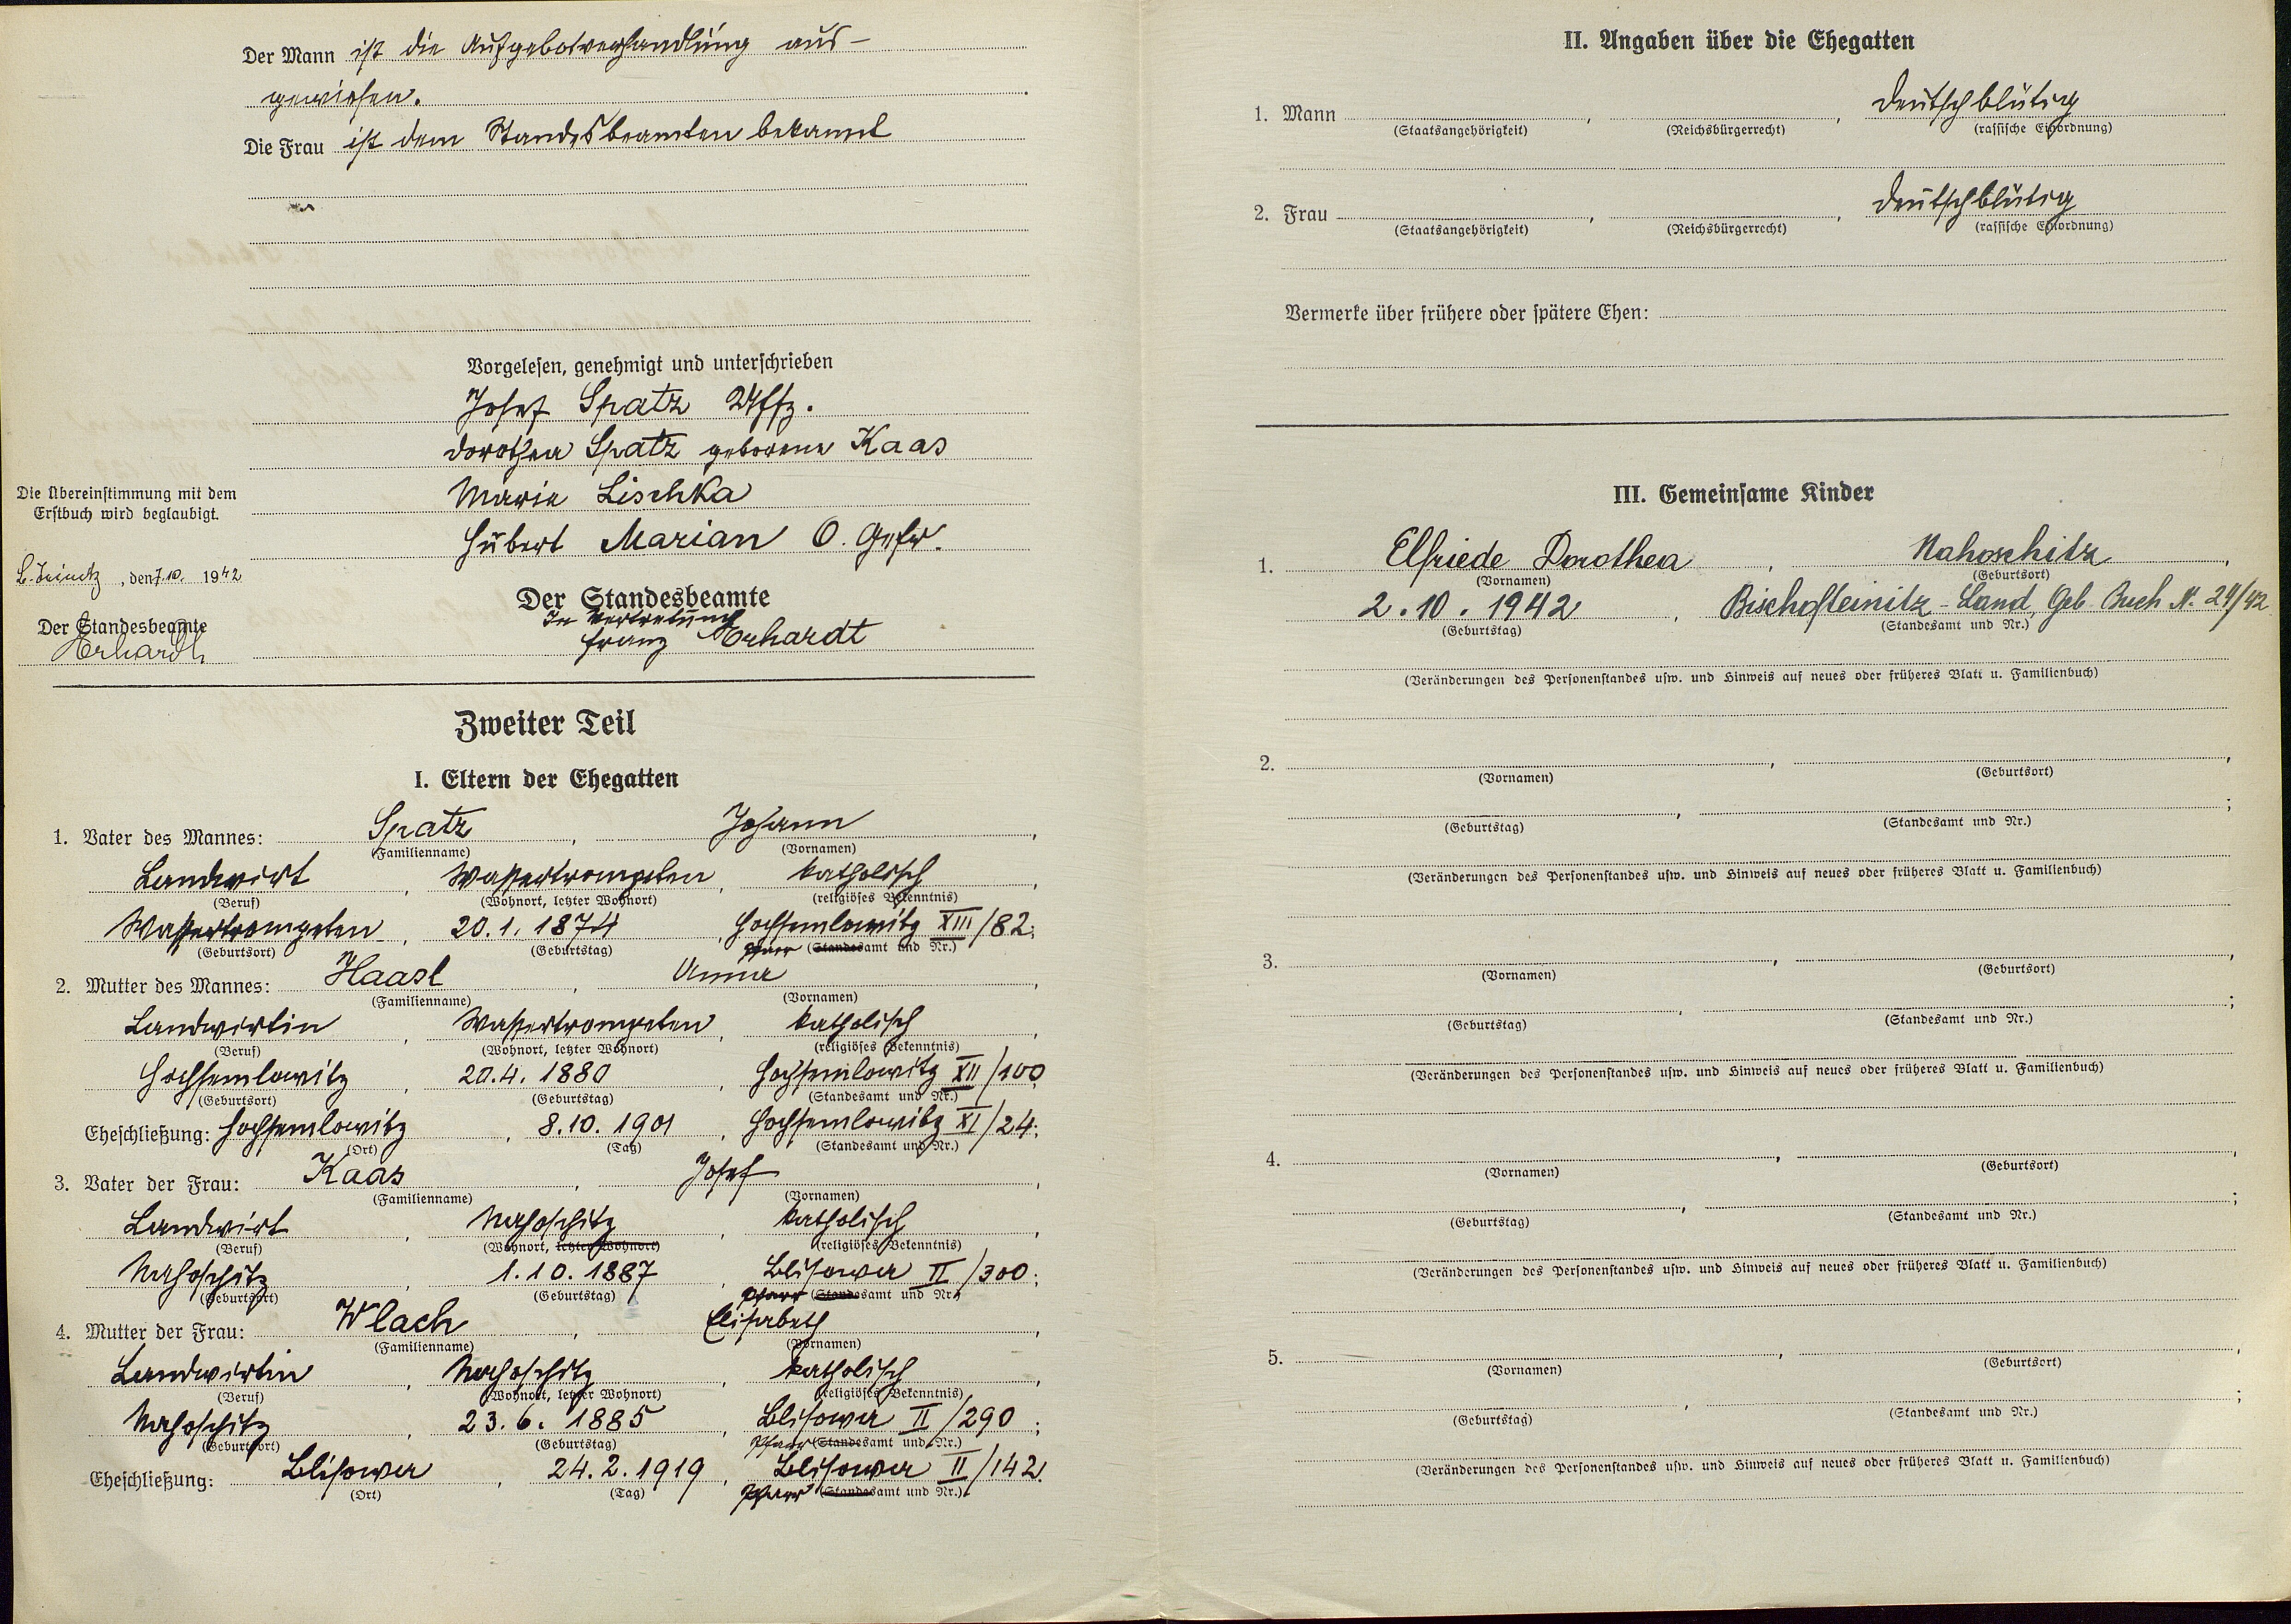 Der Mann ist die Aufgebotverhandlung aus-
gewiesen.
Die Frau ist dem Standesbeamten bekannt
Vorgelesen, genehmigt und unterschrieben
Josef Spatz Uffz.
Dorothea Spatz geborene Kaas
Maria Lischka
Hubert Marian O. Gefr.
Die Übereinstimmung mit dem
Erstbuch wird beglaubigt.
, den 7.10. 1942
Der Standesbeamte
Erhardt
Der Standesbeamte
In Vertretung
Franz Erhardt
Zweiter Teil
I. Eltern der Ehegatten
1. Vater des Mannes: Spatz, Johann,
(Familienname) (Vornamen)
Landwirt, Wassertrompeten, katholisch,
(Beruf) (Wohnort, letzter Wohnort) (religiöses Bekenntnis)
Wassertrompeten, 20.1.1874, Hochsemlowitz XIII/82;
(Geburtsort) (Geburtstag) Pfarr (Standesamt und Nr.)
2. Mutter des Mannes: Haasl, Anna,
(Familienname) (Vornamen)
Landwirtin, Wassertrompeten, katholisch,
(Beruf) (Wohnort, letzter Wohnort) (religiöses Bekenntnis)
Hochsemlowitz, 20.4.1880, Hochsemlowitz XII/100
(Geburtsort) (Geburtstag) (Standesamt und Nr.)
Eheschließung: Hochsemlowitz, 8.10.1901, Hochsemlowitz XI/24;
(Ort) (Tag) (Standesamt und Nr.)
3. Vater der Frau: Kaas, Josef,
(Familienname) (Vornamen)
Landwirt, Nahoschitz, katholisch,
(Beruf) (Wohnort, letzter Wohnort) (religiöses Bekenntnis)
Nahoschitz, 1.10.1887, Blisowa II/300;
(Geburtsort) (Geburtstag) Pfarr (Standesamt und Nr.)
4. Mutter der Frau: Wlach, Elisabeth,
(Familienname) (Vornamen)
Landwirtin, Nahoschitz, katholisch,
(Beruf) (Wohnort, letzter Wohnort) (religiöses Bekenntnis)
Nahoschitz, 23.6.1885, Blisowa II/290;
(Geburtsort) (Geburtstag) Pfarr (Standesamt und Nr.)
Eheschließung: Blisowa, 24.2.1919, Blisowa II/142.
(Ort) (Tag) Pfarr (Standesamt und Nr.)
II. Angaben über die Ehegatten
1. Mann , , deutschblütig
(Staatsangehörigkeit) (Reichsbürgerrecht) (rassische Einordnung)
2. Frau , , deutschblütig
(Staatsangehörigkeit) (Reichsbürgerrecht) (rassische Einordnung)
Vermerke über frühere oder spätere Ehen:
III. Gemeinsame Kinder
1. Elfriede Dorothea, Nahoschitz,
(Vornamen) (Geburtsort)
2.10.1942, Bischofteinitz-Land, Geb. Buch N. 24/42
(Geburtstag) (Standesamt und Nr.)
(Veränderungen des Personenstandes usw. und Hinweis auf neues oder früheres Blatt u. Familienbuch)
2. , ,
(Vornamen) (Geburtsort)
, ;
(Geburtstag) (Standesamt und Nr.)
(Veränderungen des Personenstandes usw. und Hinweis auf neues oder früheres Blatt u. Familienbuch)
3. , ,
(Vornamen) (Geburtsort)
, ;
(Geburtstag) (Standesamt und Nr.)
(Veränderungen des Personenstandes usw. und Hinweis auf neues oder früheres Blatt u. Familienbuch)
4. , ,
(Vornamen) (Geburtsort)
, ;
(Geburtstag) (Standesamt und Nr.)
(Veränderungen des Personenstandes usw. und Hinweis auf neues oder früheres Blatt u. Familienbuch)
5. , ,
(Vornamen) (Geburtsort)
, ;
(Geburtstag) (Standesamt und Nr.)
(Veränderungen des Personenstandes usw. und Hinweis auf neues oder früheres Blatt u. Familienbuch)